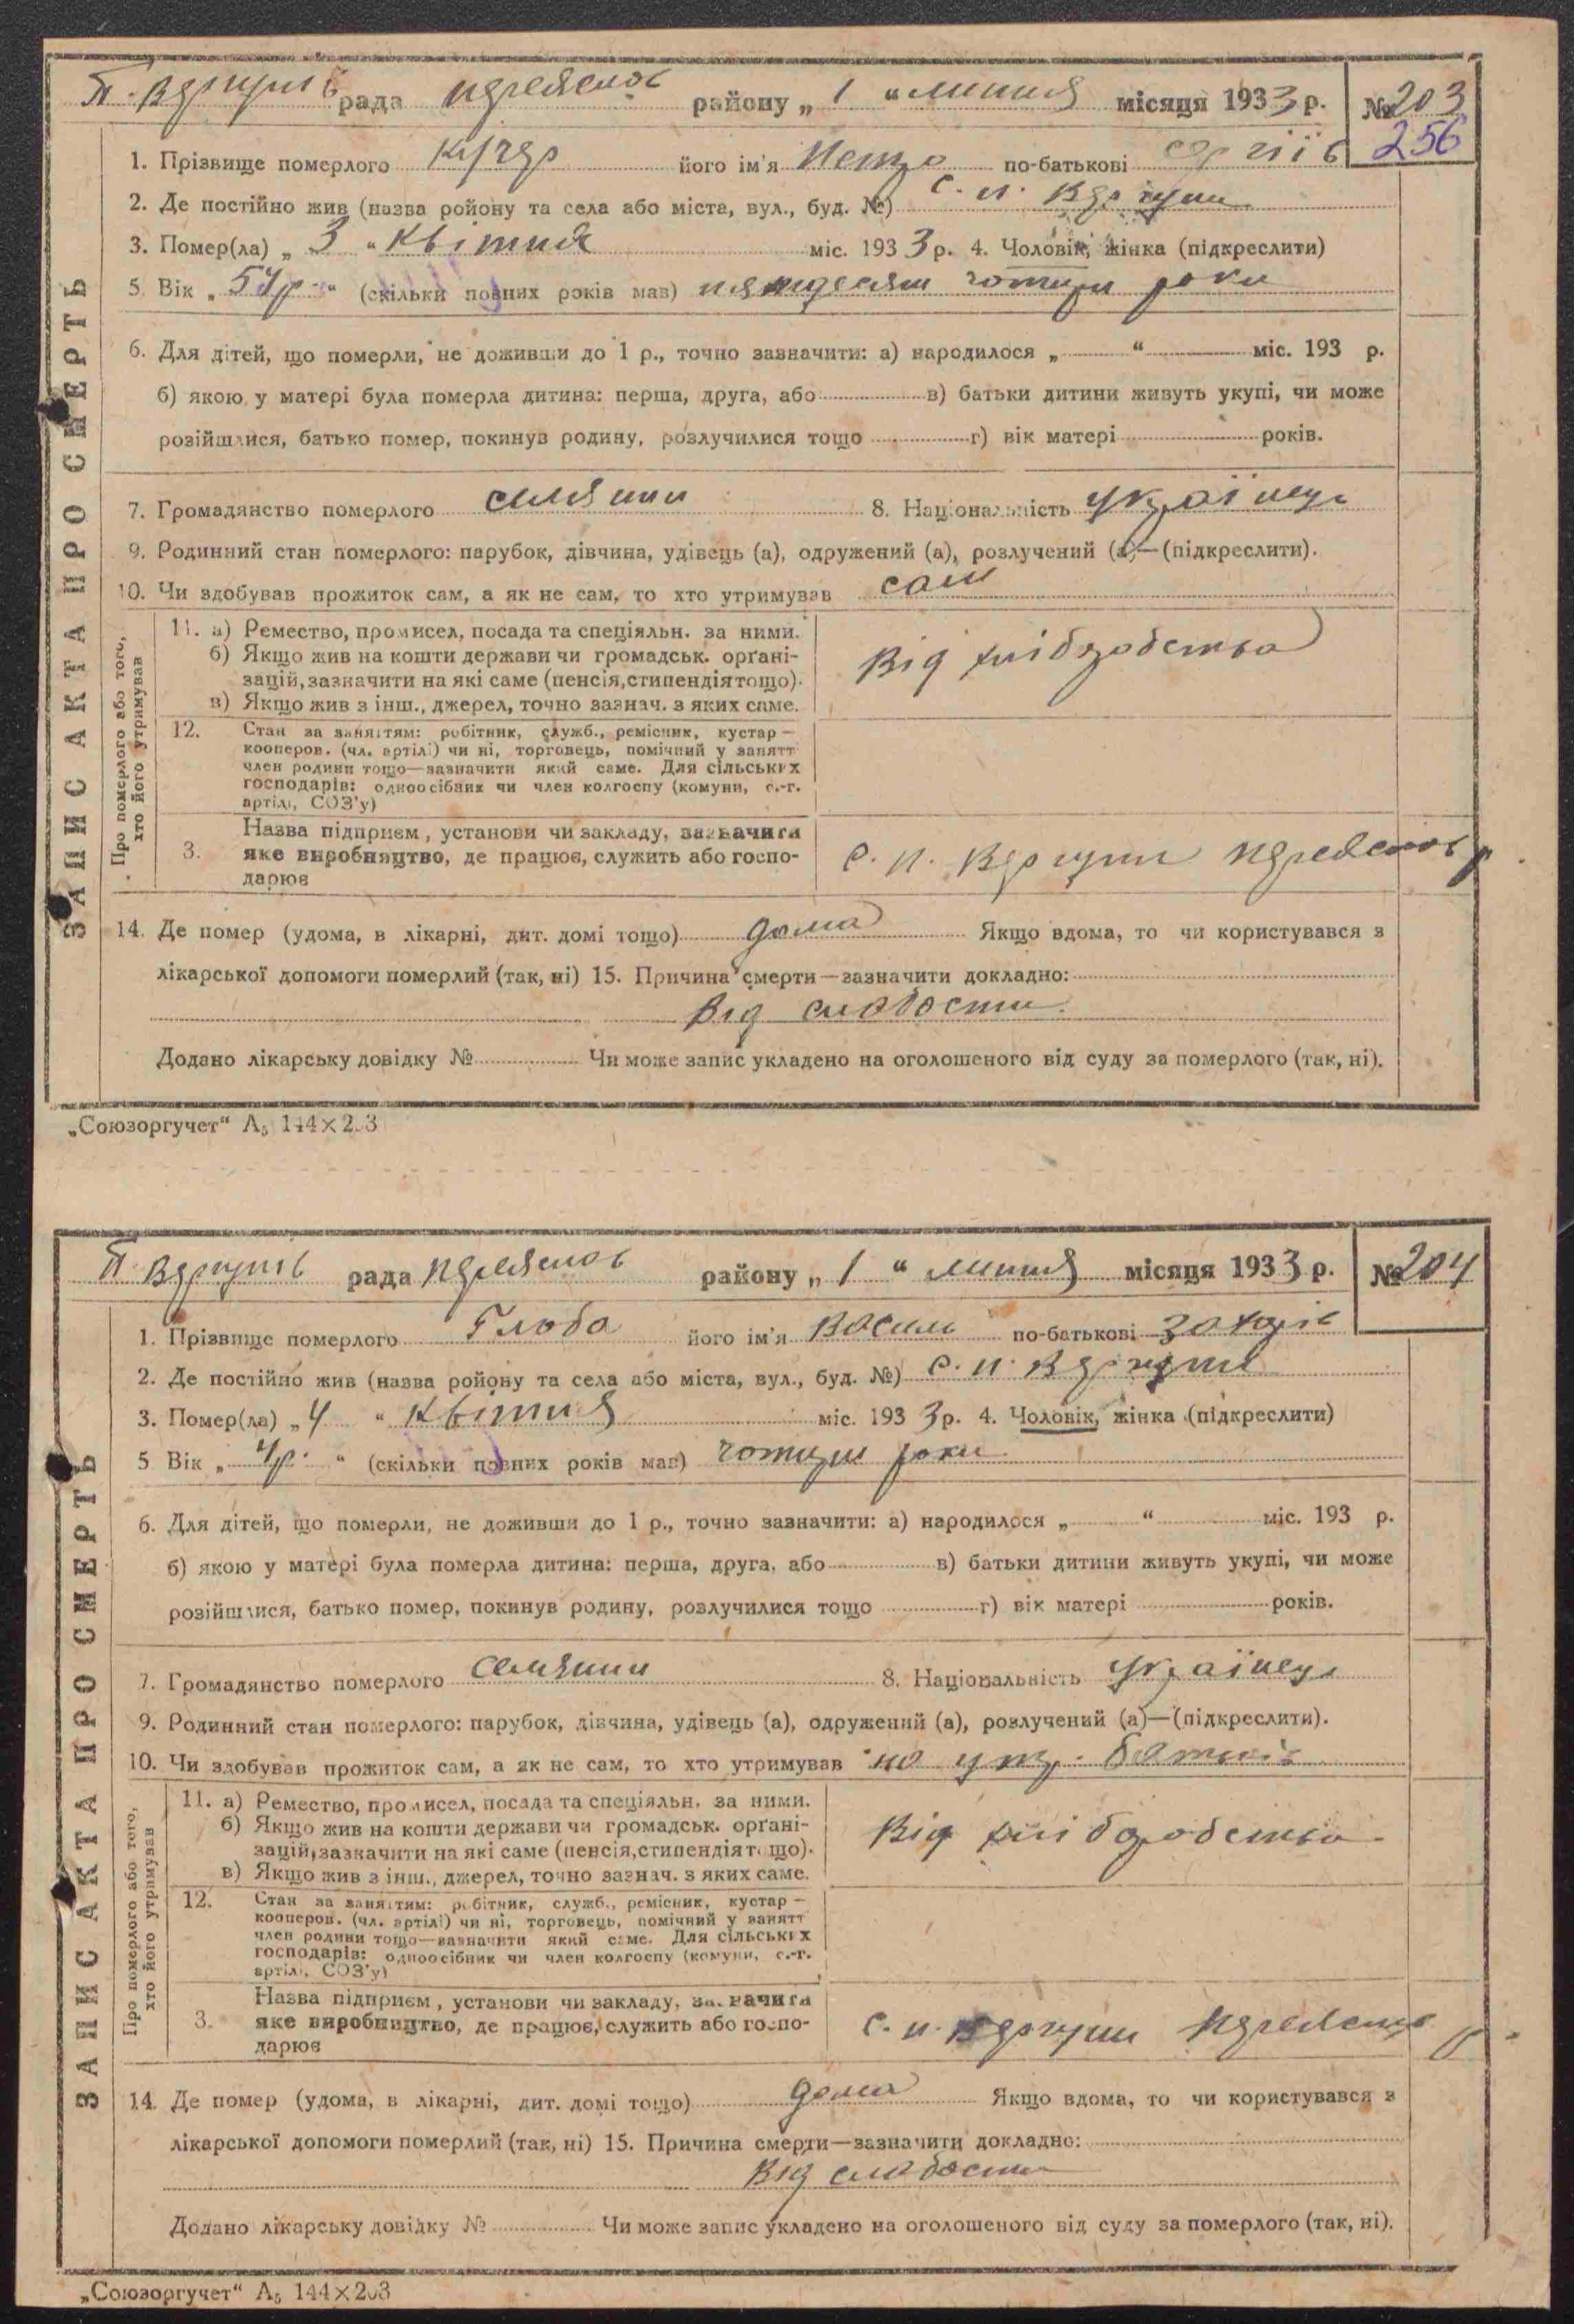 П. Вергунів рада Переяслов району „ 1 “ липня місяця 1933 р. № 203
256
1. Прізвище померлого Кучер його ім'я Петро по-батькові Сергіїв
2. Де постійно жив (назва ройону та села або міста, вул., буд. №) с. п. Вергуни
3. Помер(ла) „ 3 “ Квітня міс. 1933 р. 4. Чоловік, жінка (підкреслити)
5 Вік „ 54р. “ (скільки повних років мав) пятдесят чотири роки
6. Для дітей, що померли, не доживши до 1 р., точно зазначити: а) народилося „ “ міс. 193 р.
б) якою у матері була померла дитина: перша, друга, або в) батьки дитини живуть укупі, чи може
розійшлися, батько помер, покинув родину, розлучилися тощо г) вік матері років.
7. Громадянство померлого селянин 8. Національність українець
9. Родинний стан померлого: парубок, дівчина, удівець (а), одружений (а), розлучений (а)—(підкреслити).
10. Чи здобував прожиток сам, а як не сам, то хто утримував сам
ЗАПИС АКТА ПРО СМЕРТЬ
Про померлого або того, хто його утримував
11. а) Ремество, промисел, посада та спеціяльн. за ними.
б) Якщо жив на кошти держави чи громадськ. орґані-
зацій, зазначити на які саме (пенсія, стипендія тощо).
в) Якщо жив з інш., джерел, точно зазнач. з яких саме.
Від хліборобства
12. Стан за заняттям: робітник, служб., ремісник, кустар —
кооперов. (чл. артілі) чи ні, торговець, помічний у занятт
член родини тощо—зазначити який саме. Для сільських
господарів: одноосібник чи член колгоспу (комуни, с.-г.
артілі, СОЗ'у)
3. Назва підприєм , установи чи закладу, зазначити
яке виробництво, де працює, служить або госпо-
дарює
с. п. Вергуни Переяслов р.
14. Де помер (удома, в лікарні, дит. домі тощо) дома Якщо вдома, то чи користувався з
лікарської допомоги померлий (так, ні) 15. Причина смерти—зазначити докладно:
Від слабости
Додано лікарську довідку № Чи може запис укладено на оголошеного від суду за померлого (так, ні).
„Союзоргучет“ А₅ 144×203
П. Вергунів рада Переяслов району „ 1 “ липня місяця 1933 р. № 204
1. Прізвище померлого Глоба його ім'я Василь по-батькові Захарів
2. Де постійно жив (назва ройону та села або міста, вул., буд. №) с. п. Вергуни
3. Помер(ла) „ 4 “ Квітня міс. 1933 р. 4. Чоловік, жінка (підкреслити)
5 Вік „ 4р. “ (скільки повних років мав) чотири роки
6. Для дітей, що померли, не доживши до 1 р., точно зазначити: а) народилося „ “ міс. 193 р.
б) якою у матері була померла дитина: перша, друга, або в) батьки дитини живуть укупі, чи може
розійшлися, батько помер, покинув родину, розлучилися тощо г) вік матері років.
7. Громадянство померлого селянин 8. Національність українець
9. Родинний стан померлого: парубок, дівчина, удівець (а), одружений (а), розлучений (а)—(підкреслити).
10. Чи здобував прожиток сам, а як не сам, то хто утримував на утр. батьків
ЗАПИС АКТА ПРО СМЕРТЬ
Про померлого або того, хто його утримував
11. а) Ремество, промисел, посада та спеціяльн. за ними.
б) Якщо жив на кошти держави чи громадськ. орґані-
зацій, зазначити на які саме (пенсія, стипендія тощо).
в) Якщо жив з інш., джерел, точно зазнач. з яких саме.
Від хліборобства
12. Стан за заняттям: робітник, служб., ремісник, кустар —
кооперов. (чл. артілі) чи ні, торговець, помічний у занятт
член родини тощо—зазначити який саме. Для сільських
господарів: одноосібник чи член колгоспу (комуни, с.-г.
артілі, СОЗ'у)
3. Назва підприєм , установи чи закладу, зазначити
яке виробництво, де працює, служить або госпо-
дарює
с. п. Вергуни Переяслов р.
14. Де помер (удома, в лікарні, дит. домі тощо) дома Якщо вдома, то чи користувався з
лікарської допомоги померлий (так, ні) 15. Причина смерти—зазначити докладно:
Від слабости
Додано лікарську довідку № Чи може запис укладено на оголошеного від суду за померлого (так, ні).
„Союзоргучет“ А₅ 144×203